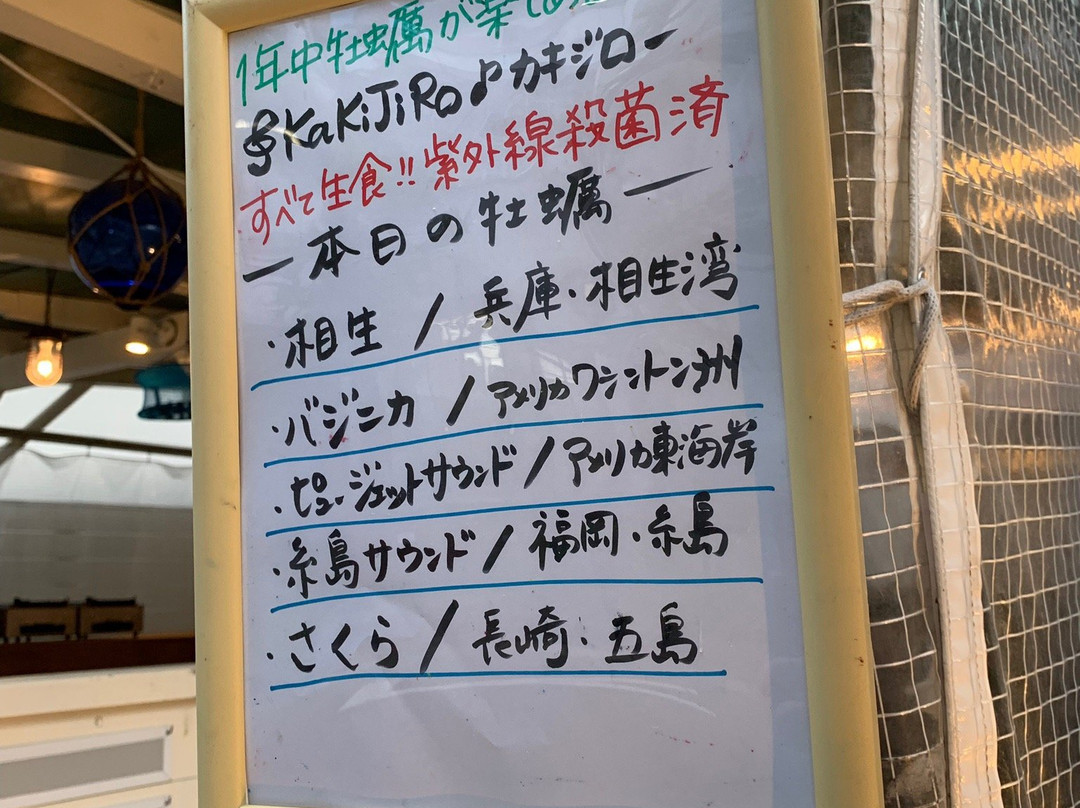 1年中牡蠣が楽し
KaKiJiRo♪カキジロー
すべて生食!!紫外線殺菌済
ー本日の牡蠣ー
・相生/兵庫・相生湾
・バジニカ/アメリカワシントン州
・ピュージェットサウンド/アメリカ東海岸
・糸島サウンド/福岡・糸島
・さくら/長崎・五島